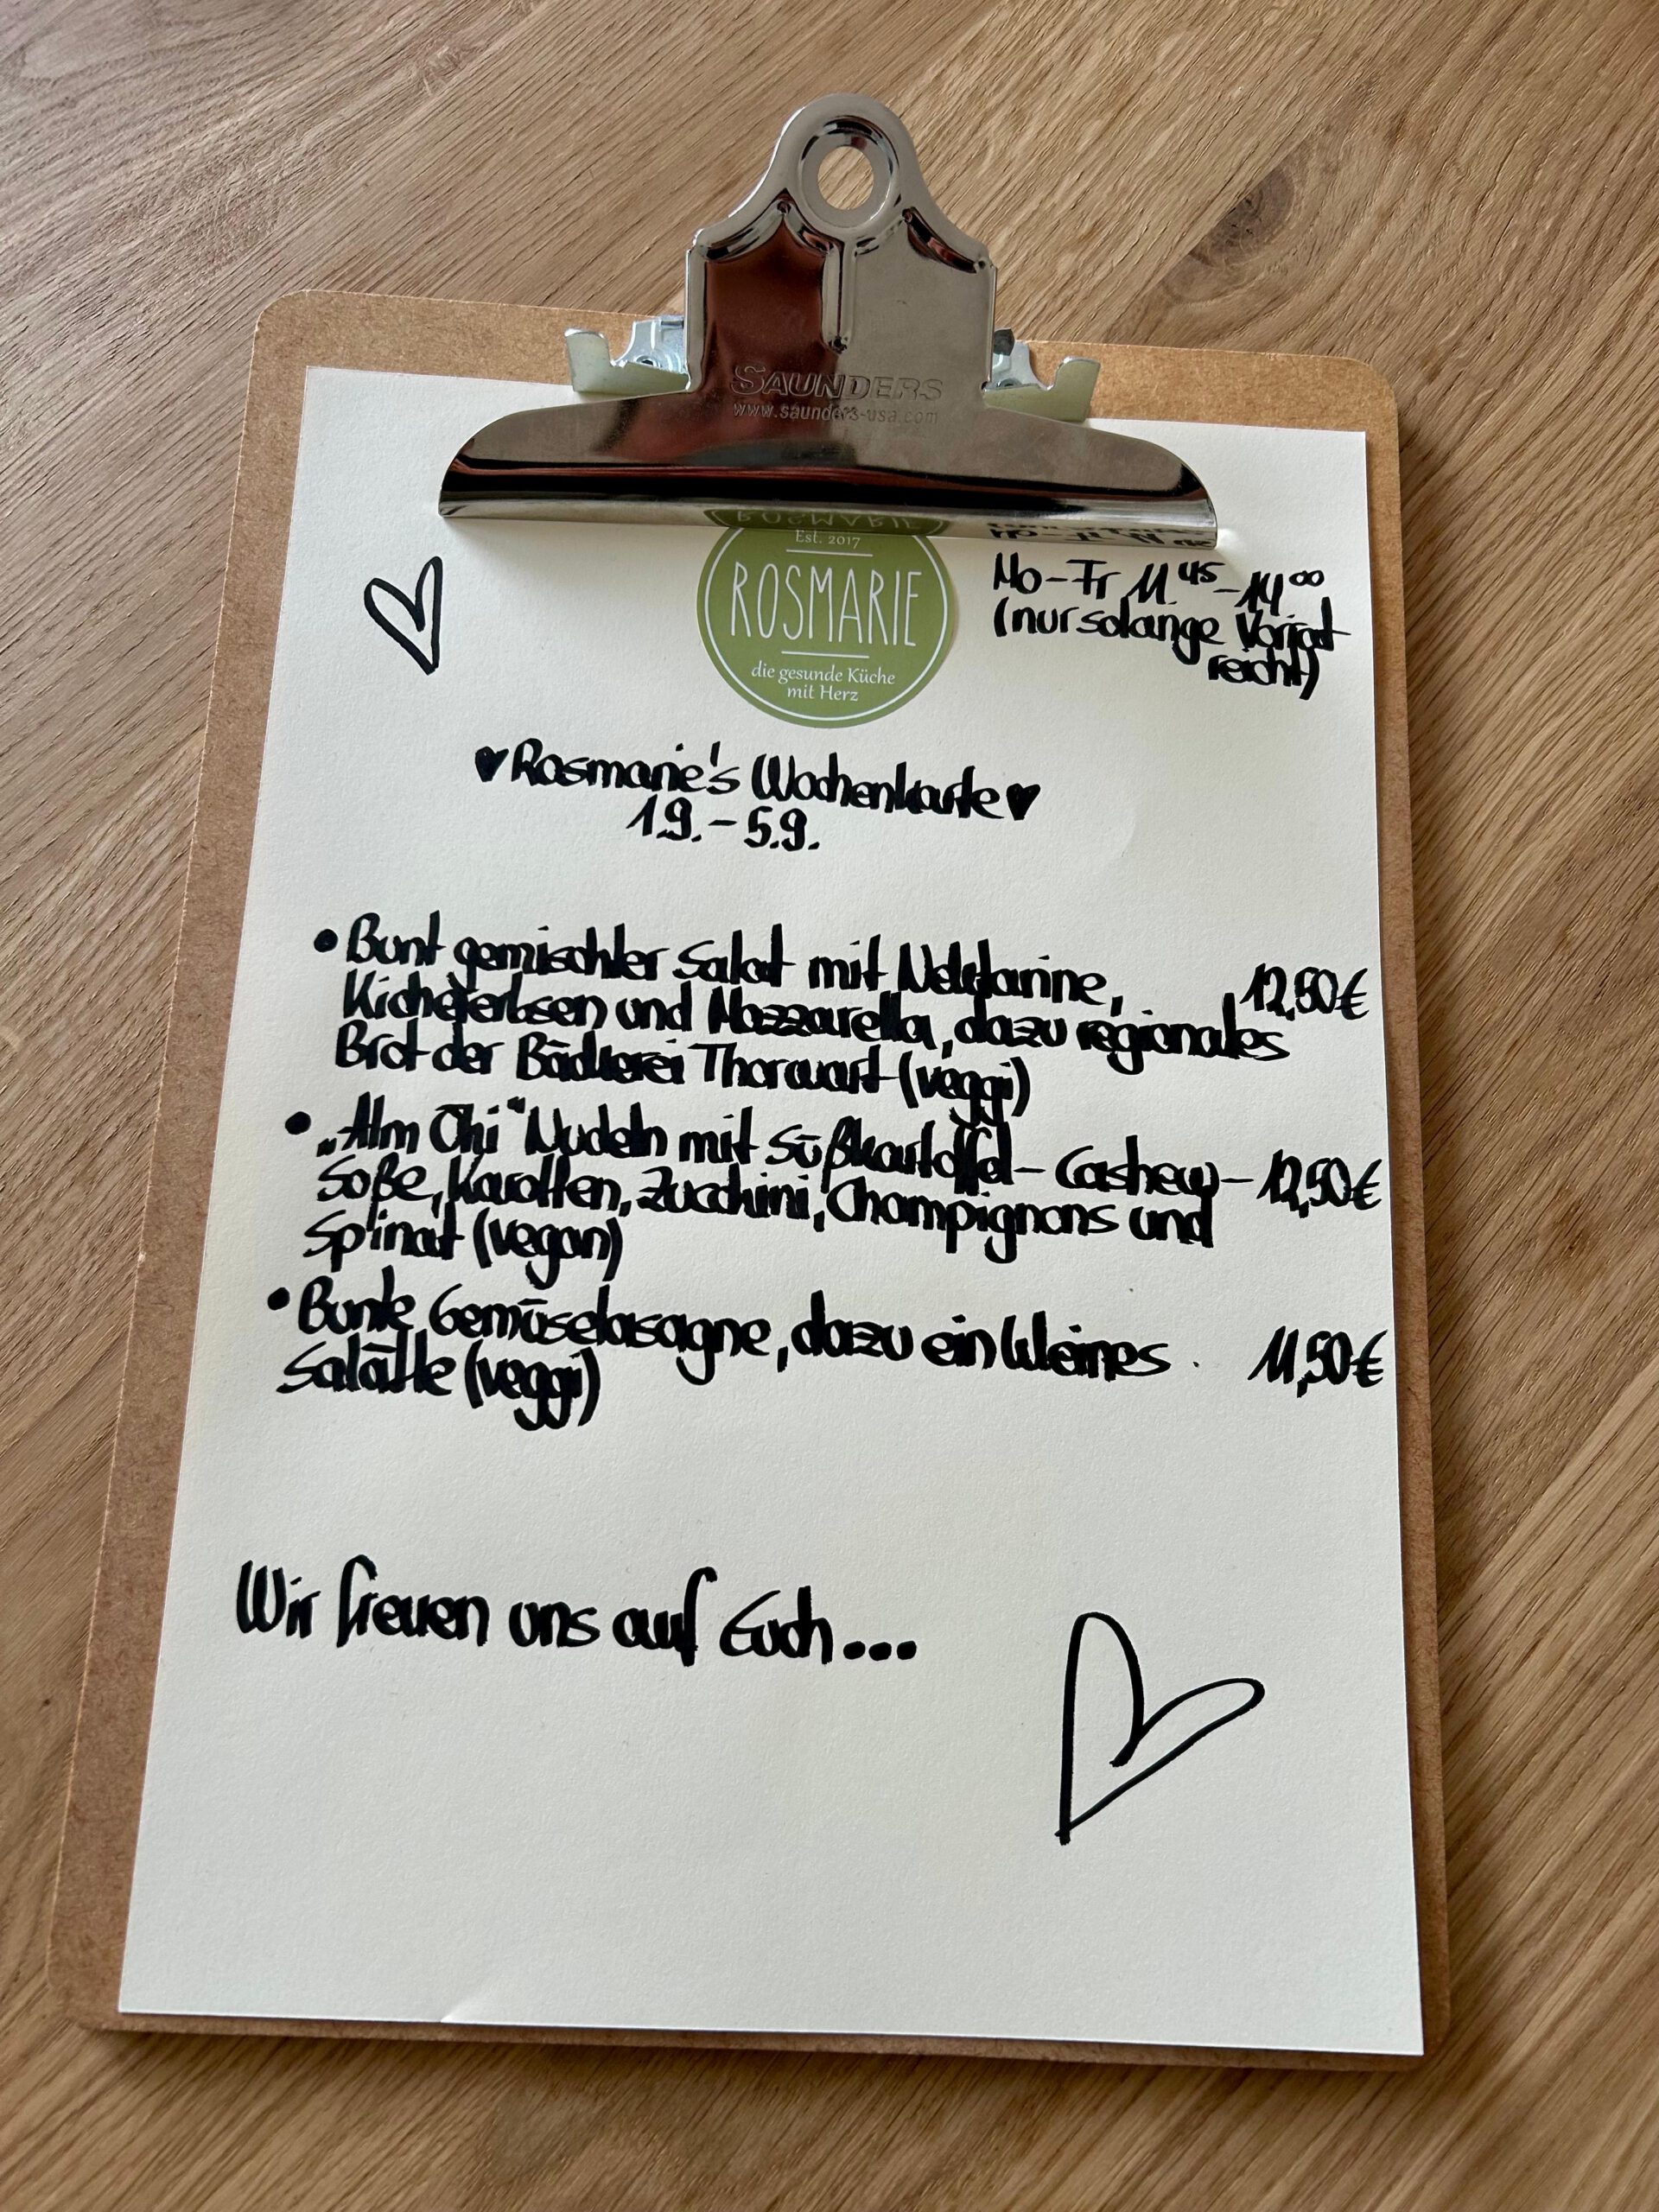 SAUNDERS
www.saunders-usa.com
Est. 2017
ROSMARIE
die gesunde Küche
mit Herz
Mo-Fr 11.45-14.00
(nur solange Vorrat
reicht)
♥Rosmarie's Wochenkarte♥
1.9.-5.9.
• Bunt gemischter Salat mit Nektarine, 12,50€
Kichererbsen und Mozzarella, dazu regionales
Brot der Bäckerei Thorwart (veggi)
• „Alm Chi" Nudeln mit Süßkartoffel-Cashew- 12,50€
Soße, Karotten, Zucchini, Champignons und
Spinat (vegan)
• Bunte Gemüselasagne, dazu ein kleines 11,50€
Salätle (veggi)
Wir freuen uns auf Euch...